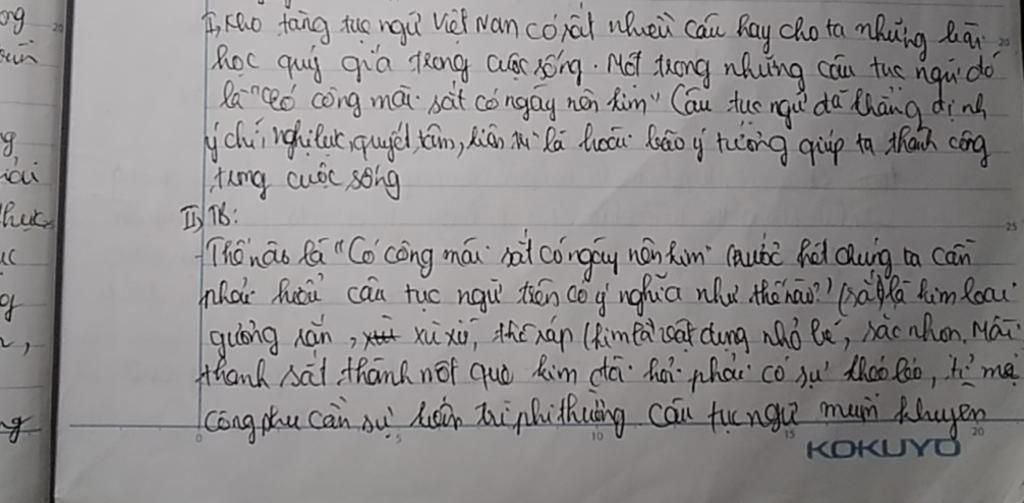 ong
I, Kho tàng tục ngữ Việt Nam có rất nhiều câu hay cho ta những bài
học quý giá trong cuộc sống. Một trong những câu tục ngữ đó
là "Có công mài sắt có ngày nên kim" Câu tục ngữ đã khẳng định
ý chí, nghị lực, quyết tâm, kiên trì là hoài bão ý tưởng giúp ta thành công
trong cuộc sống
II, TB:
- Thế nào là "Có công mài sắt có ngày nên kim" trước hết chúng ta cần
phải hiểu câu tục ngữ trên có ý nghĩa như thế nào? (sắt) là kim loại
cứng rắn, xù xì, thô ráp (kim là vật dụng nhỏ bé, sắc nhọn. Mài
thanh sắt thành một que kim đòi hỏi phải có sự khéo léo, tỉ mẻ
công phu cần sự kiên trì phi thường Câu tục ngữ muốn khuyên
0 5 10 15 20
25
KOKUYO